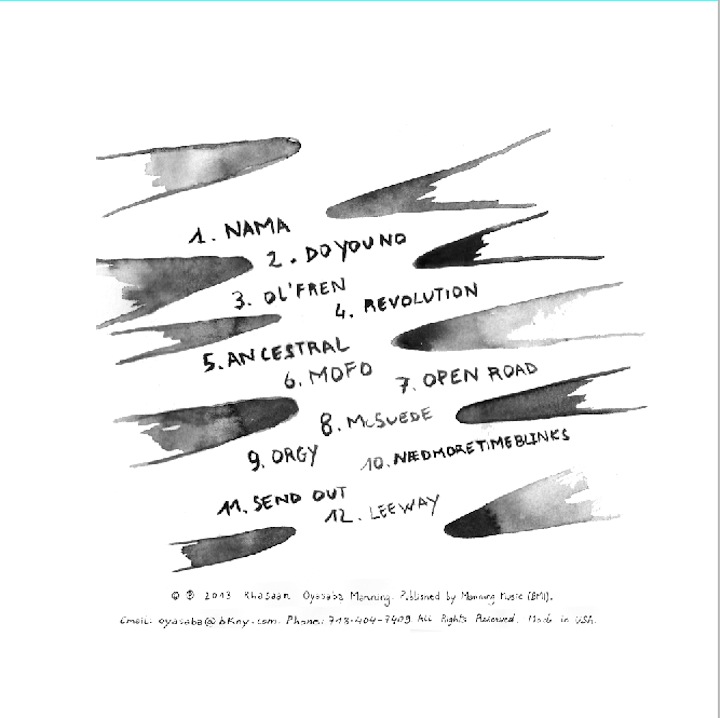 1. NAMA
2. DO YOU NO
3. OL'FREN
4. REVOLUTION
5. ANCESTRAL
6. MOFO
7. OPEN ROAD
8. McSUEDE
9. ORGY
10. NÆDMORETIMEBLINKS
11. SEND OUT
12. LEEWAY
© ℗ 2013 Khasaan Oyasaba Manning. Published by Manning Music (BMI).
Email: oyasaba@bkny.com. Phone: 718-404-7409 All Rights Reserved. Made in USA.